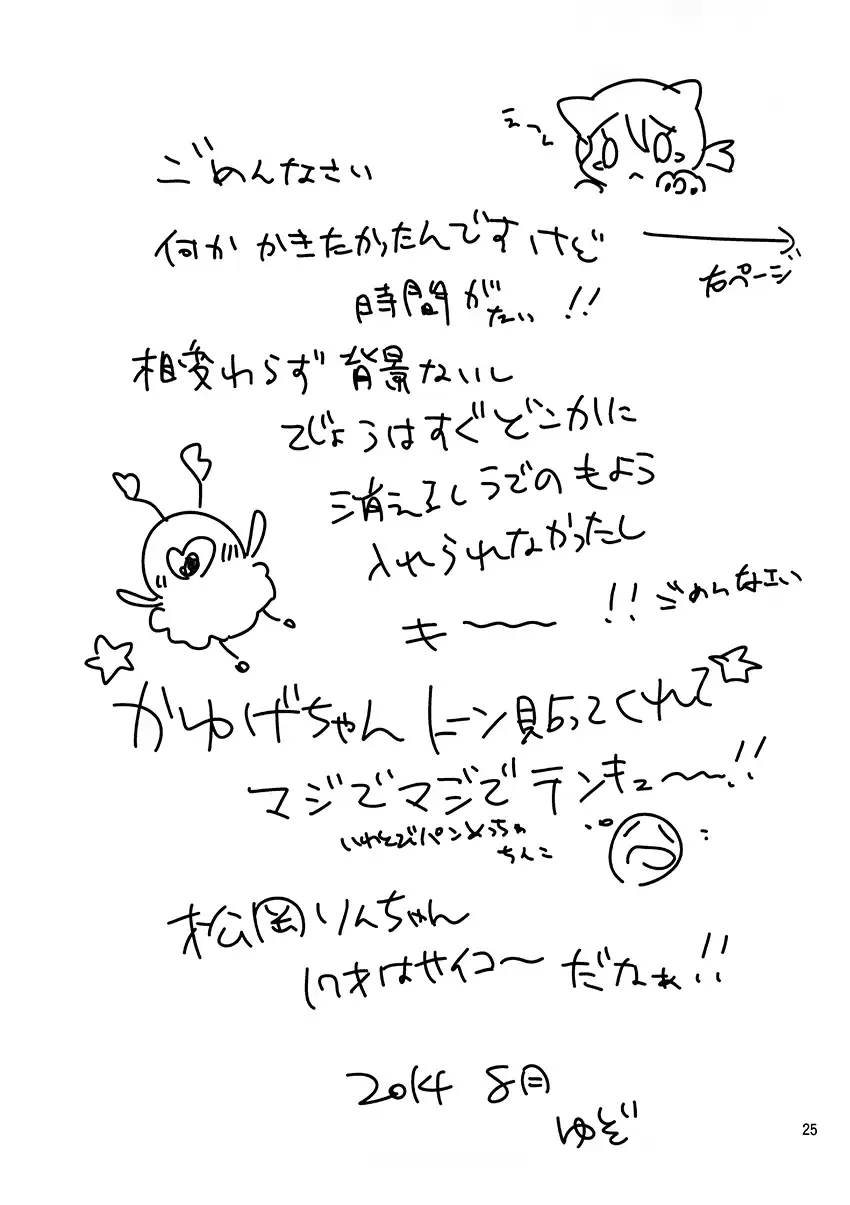 えっと
ごめんなさい
何か かきたかったんですけど
右ページ
時間がない!!
相変わらず背景ないし
びょうはすぐどこかに
消えてしうでのもよう
入れられなかったし
キ〜〜〜!!ごめんなエい
がゆげちゃん トーン貼ってくれて☆
マジでマジでテンキュー〜!!
いわとびパンとっちゃ
ちんこ
松岡りんちゃん
17才はサイコ〜だなぁ!!
2014 8月
ゆぞ
25